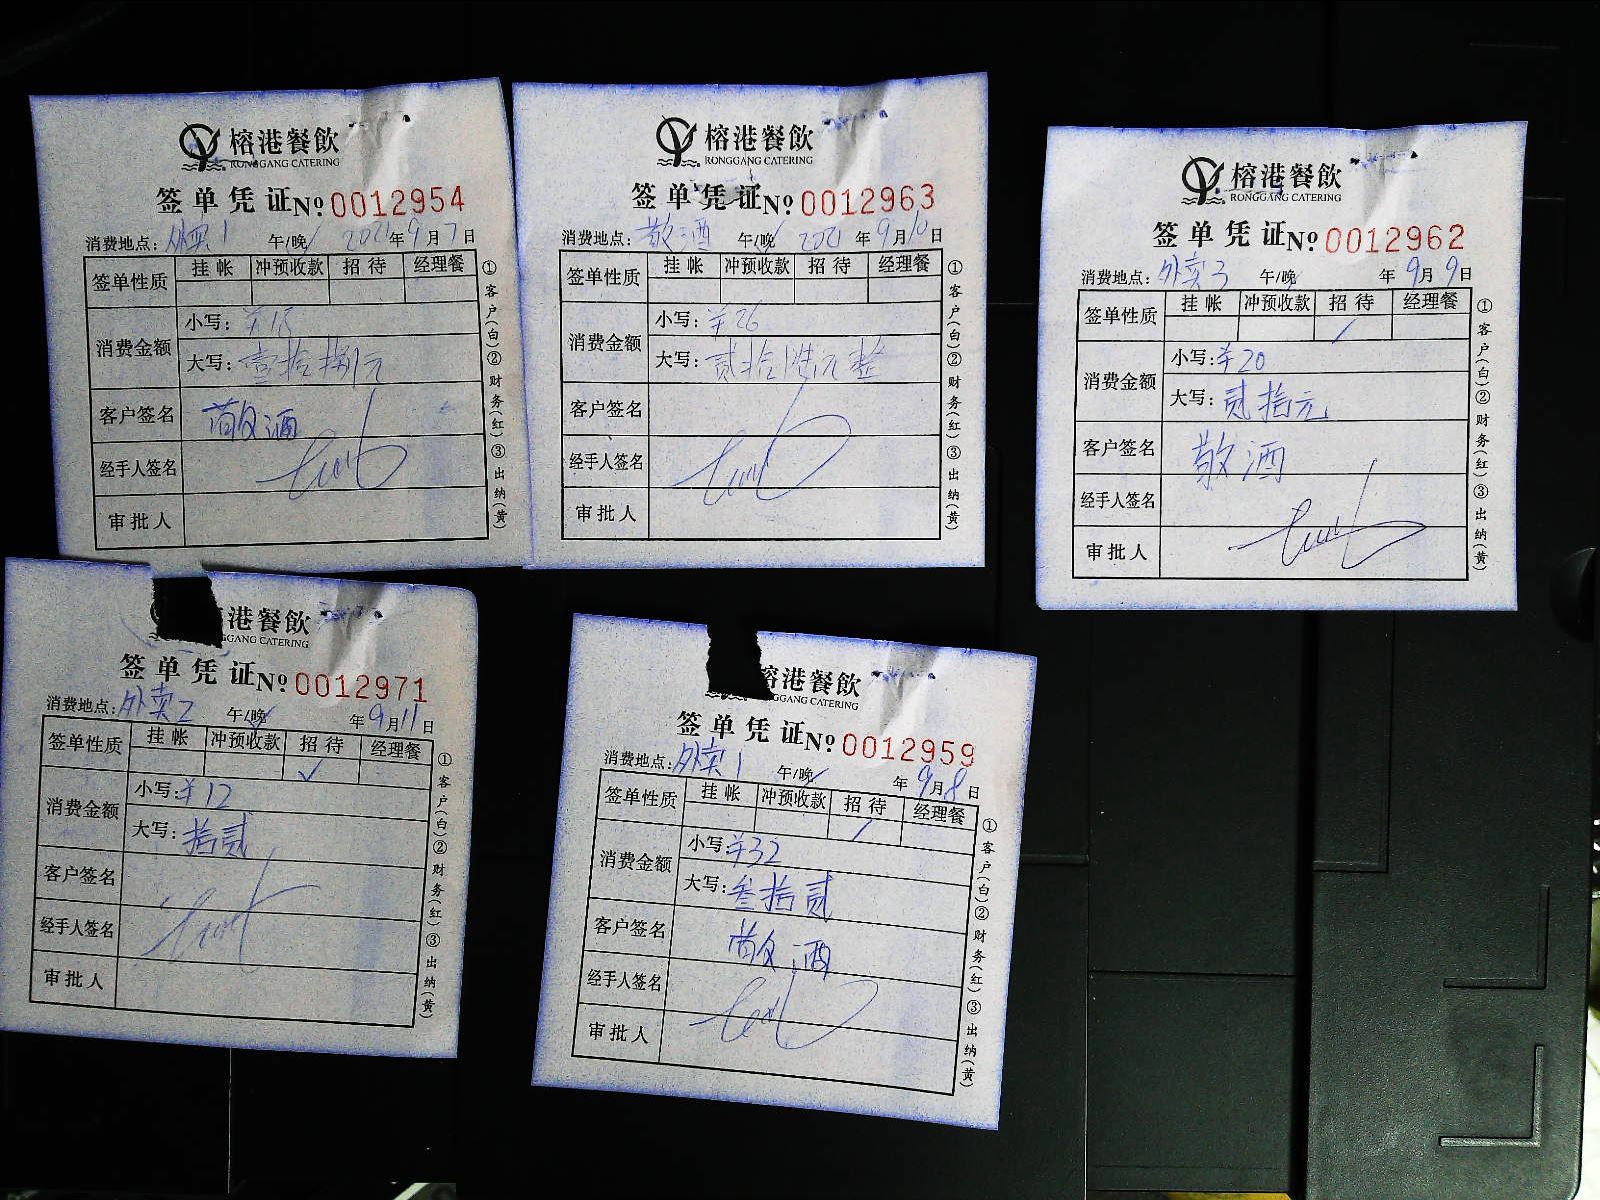 榕港餐飲
RONGGANG CATERING
签单凭证№0012954
消费地点：外卖1 午/晚✓ 2021年9月7日
签单性质 挂帐 冲预收款 招待 经理餐
消费金额
小写：¥18
大写：壹拾捌元
客户签名 敬酒
经手人签名
审批人
①客户(白)②财务(红)③出纳(黄)
榕港餐飲
RONGGANG CATERING
签单凭证№0012963
消费地点：散酒 午/晚✓ 2021年9月10日
签单性质 挂帐 冲预收款 招待 经理餐
消费金额
小写：¥26
大写：贰拾陆元整
客户签名
经手人签名
审批人
①客户(白)②财务(红)③出纳(黄)
榕港餐飲
RONGGANG CATERING
签单凭证№0012962
消费地点：外卖3 午/晚✓ 年9月9日
签单性质 挂帐 冲预收款 招待 经理餐
✓
消费金额
小写：¥20
大写：贰拾元
客户签名 散酒
经手人签名
审批人
①客户(白)②财务(红)③出纳(黄)
港餐飲
GANG CATERING
签单凭证№0012971
消费地点：外卖2 午/晚✓ 年9月11日
签单性质 挂帐 冲预收款 招待 经理餐
✓
消费金额
小写：¥12
大写：拾贰
客户签名
经手人签名
审批人
①客户(白)②财务(红)③出纳(黄)
榕港餐飲
GGANG CATERING
签单凭证№0012959
消费地点：外卖1 午/晚✓ 年9月8日
签单性质 挂帐 冲预收款 招待 经理餐
✓
消费金额
小写：¥32
大写：叁拾贰
客户签名 敬酒
经手人签名
审批人
①客户(白)②财务(红)③出纳(黄)